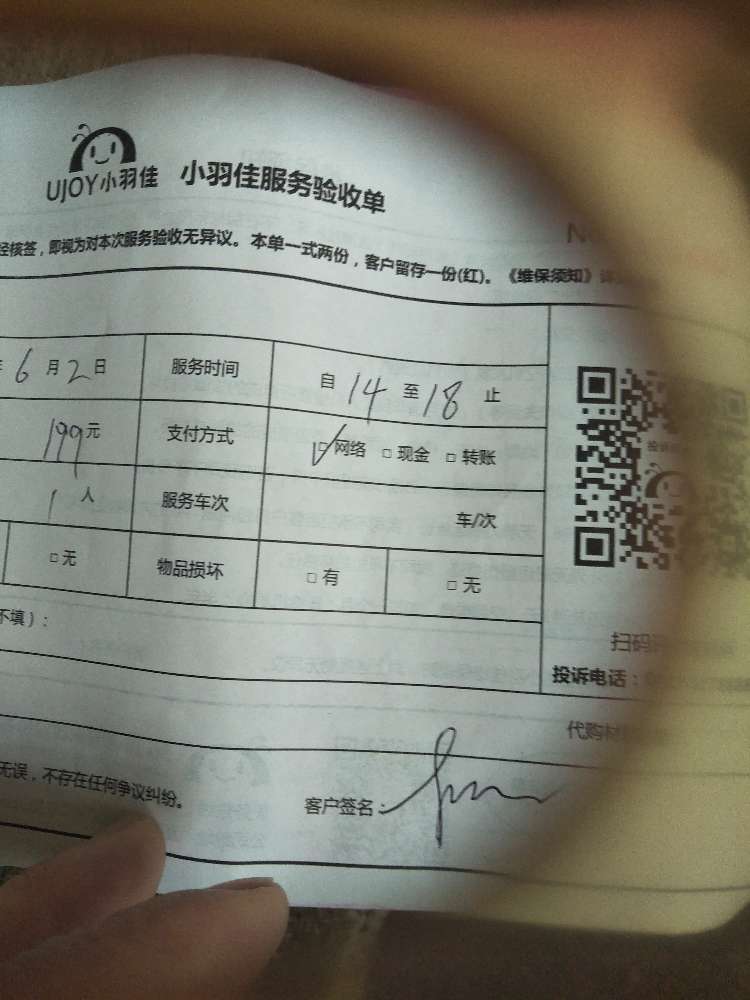 UJOY小羽佳 小羽佳服务验收单
核签，即视为对本次服务验收无异议。本单一式两份，客户留存一份(红)。《维保须知》
6月2日 服务时间 自14至18止
199元 支付方式 ☑网络 □现金 □转账
1人 服务车次 车/次
□无 物品损坏 □有 □无
不填）：
扫码
投诉电话：
代购材
无误，不存在任何争议纠纷。
客户签名：